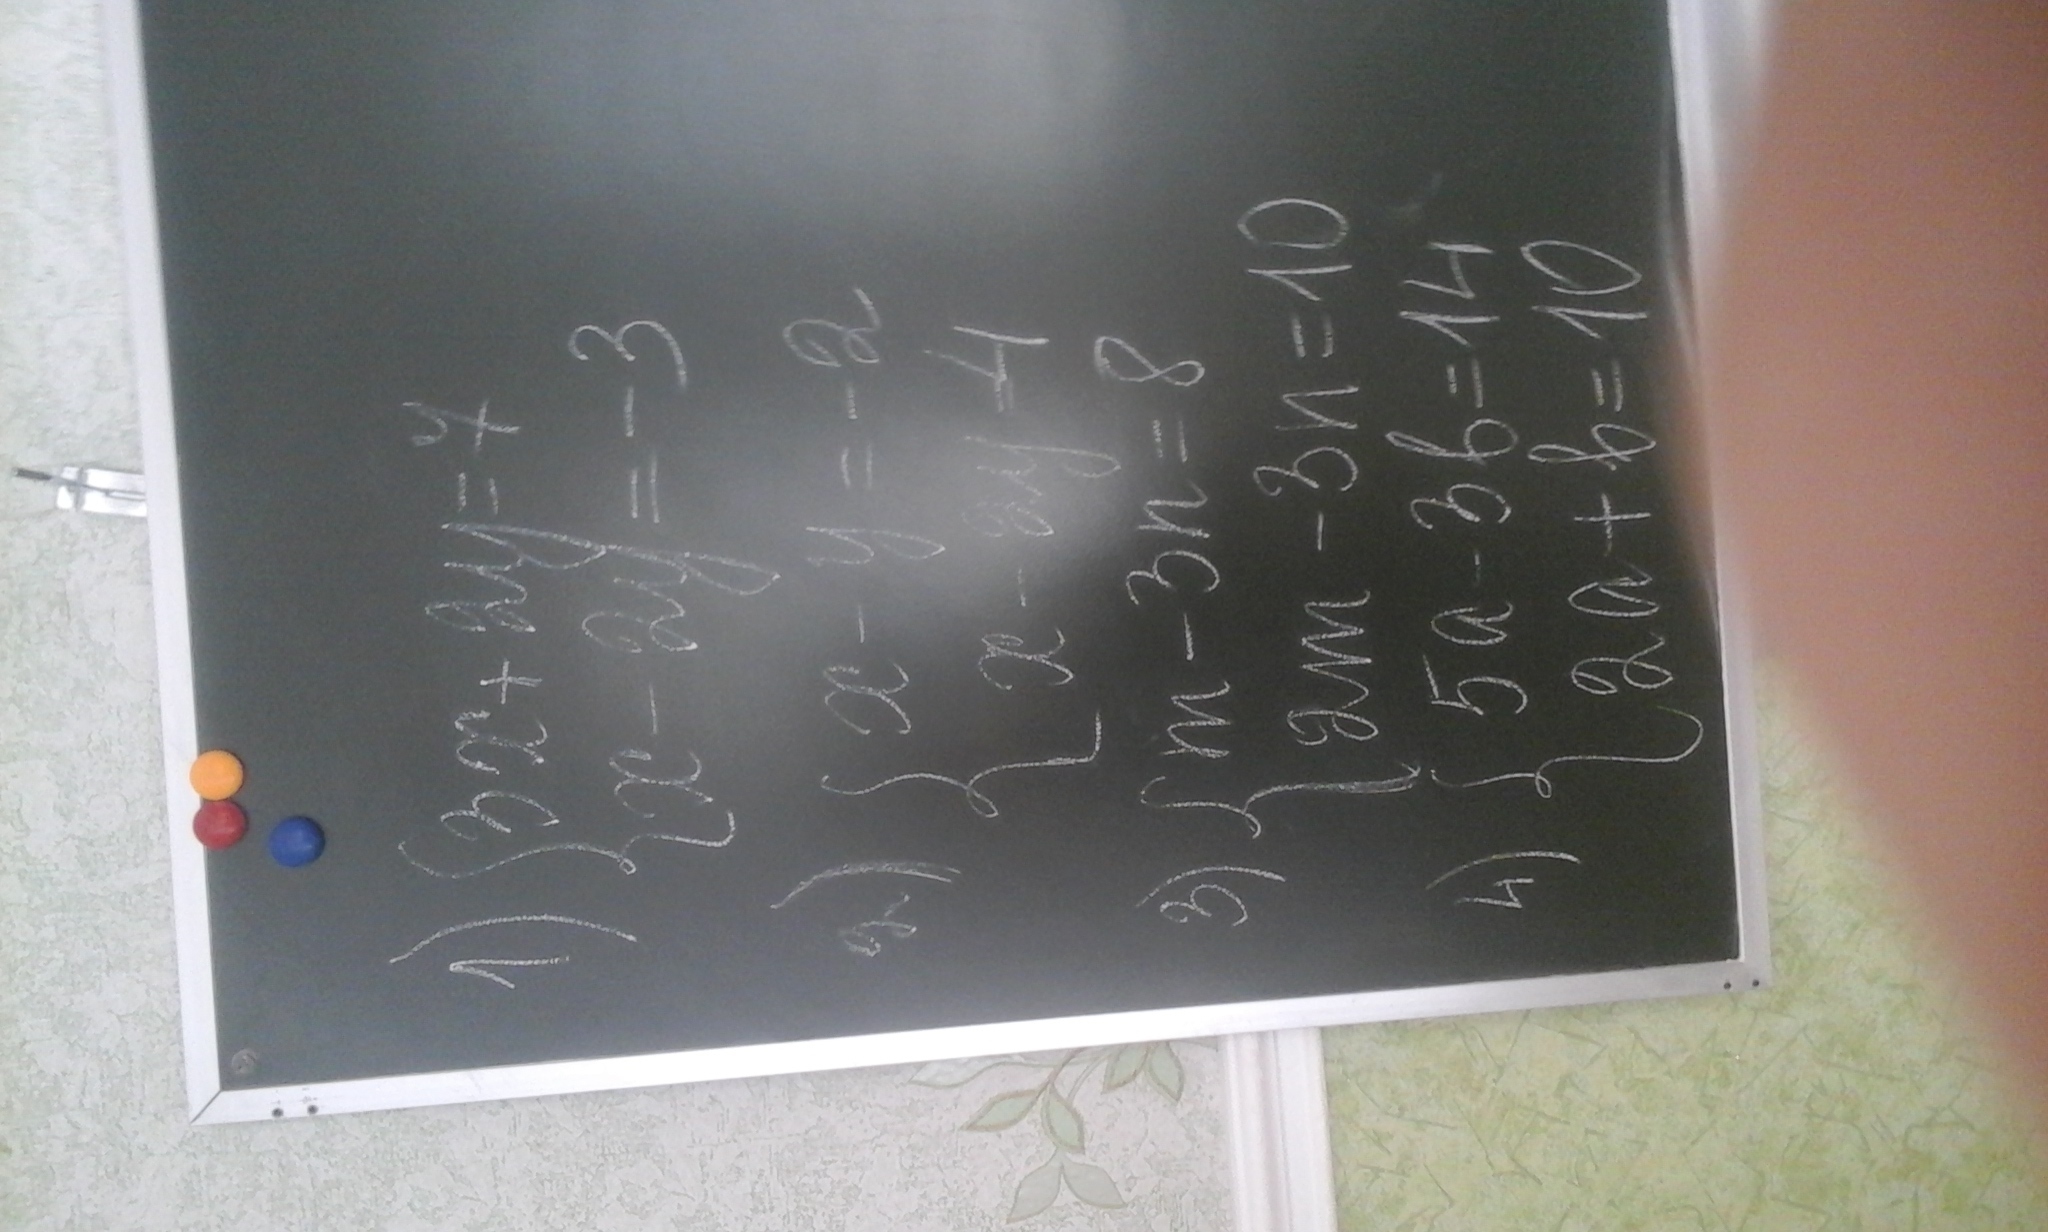 1) { 3x + 2y = 7
x - 2y = -3
2) { x - y = -2
x - 2y = 4
3) { m - 3n = 8
2m - 3n = 10
4) { 5a - 3b = 14
2a + b = 10